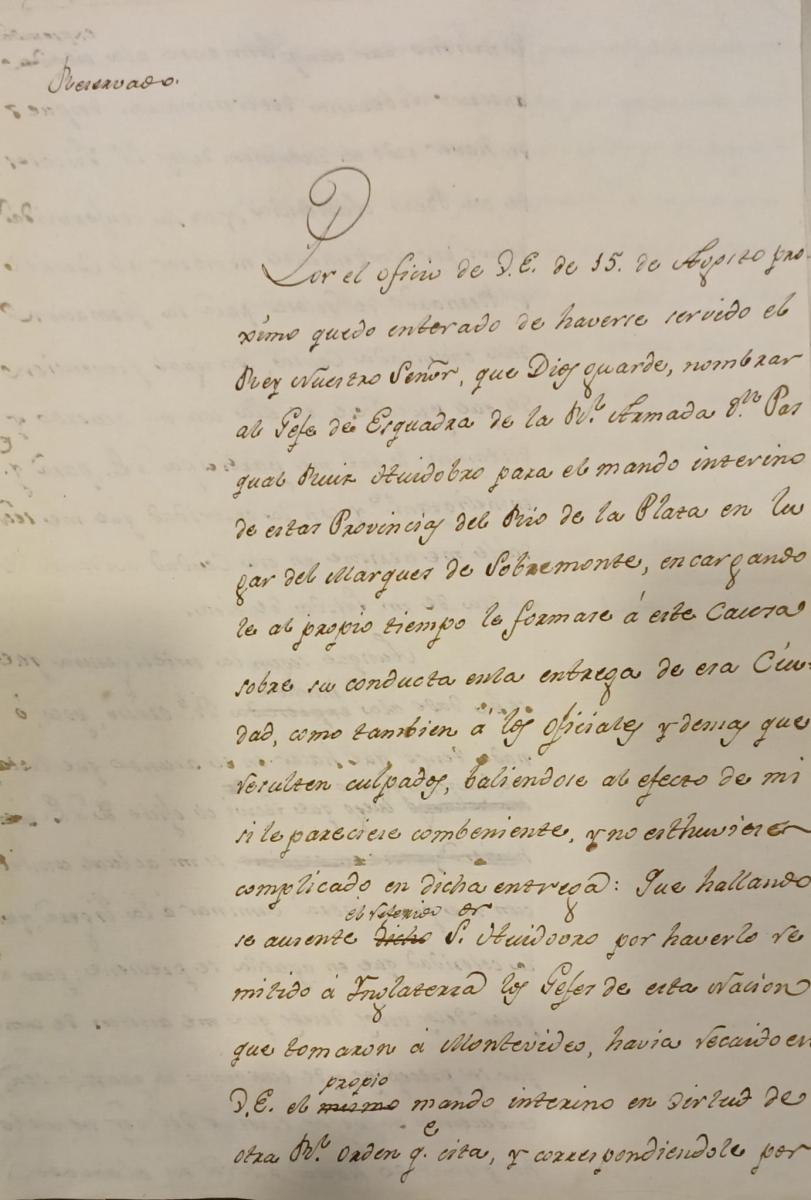 Reservado.
Por el oficio de V.E. de 15. de Agosto pro-
ximo quedo enterado de haverse servido el
Rey Nuestro Señor, que Dios guarde, nombrar
al Gefe de Esquadra de la Rl. Armada Dn. Pas
qual Ruiz Huidobro para el mando interino
de estas Provincias del Rio de la Plata en lu
gar del Marques de Sobremonte, encargando
le al propio tiempo le formase á este Causa
sobre su conducta en la entrega de esa Ciu-
dad, como tambien á los oficiales y demas que
resulten culpados, baliendose al efecto de mi
si le pareciese combeniente, y no esthuviese
complicado en dicha entrega: Que hallando
el referido or
se ausente dicho S. Huidovro por haverlo re
mitido á Ynglaterra los Gefes de esta Nacion
que tomaron á Montevideo, havia recaido en
propio
V.E. el mismo mando interino en virtud de
e
otra Rl. orden q. cita, y correspondiendole por